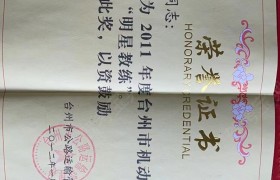 荣誉证书
HONORARY CREDENTIAL
同志：
为2011年度台州市机动
“明星教练”。
此奖，以资鼓励
台州市公路运输
二〇一二年一